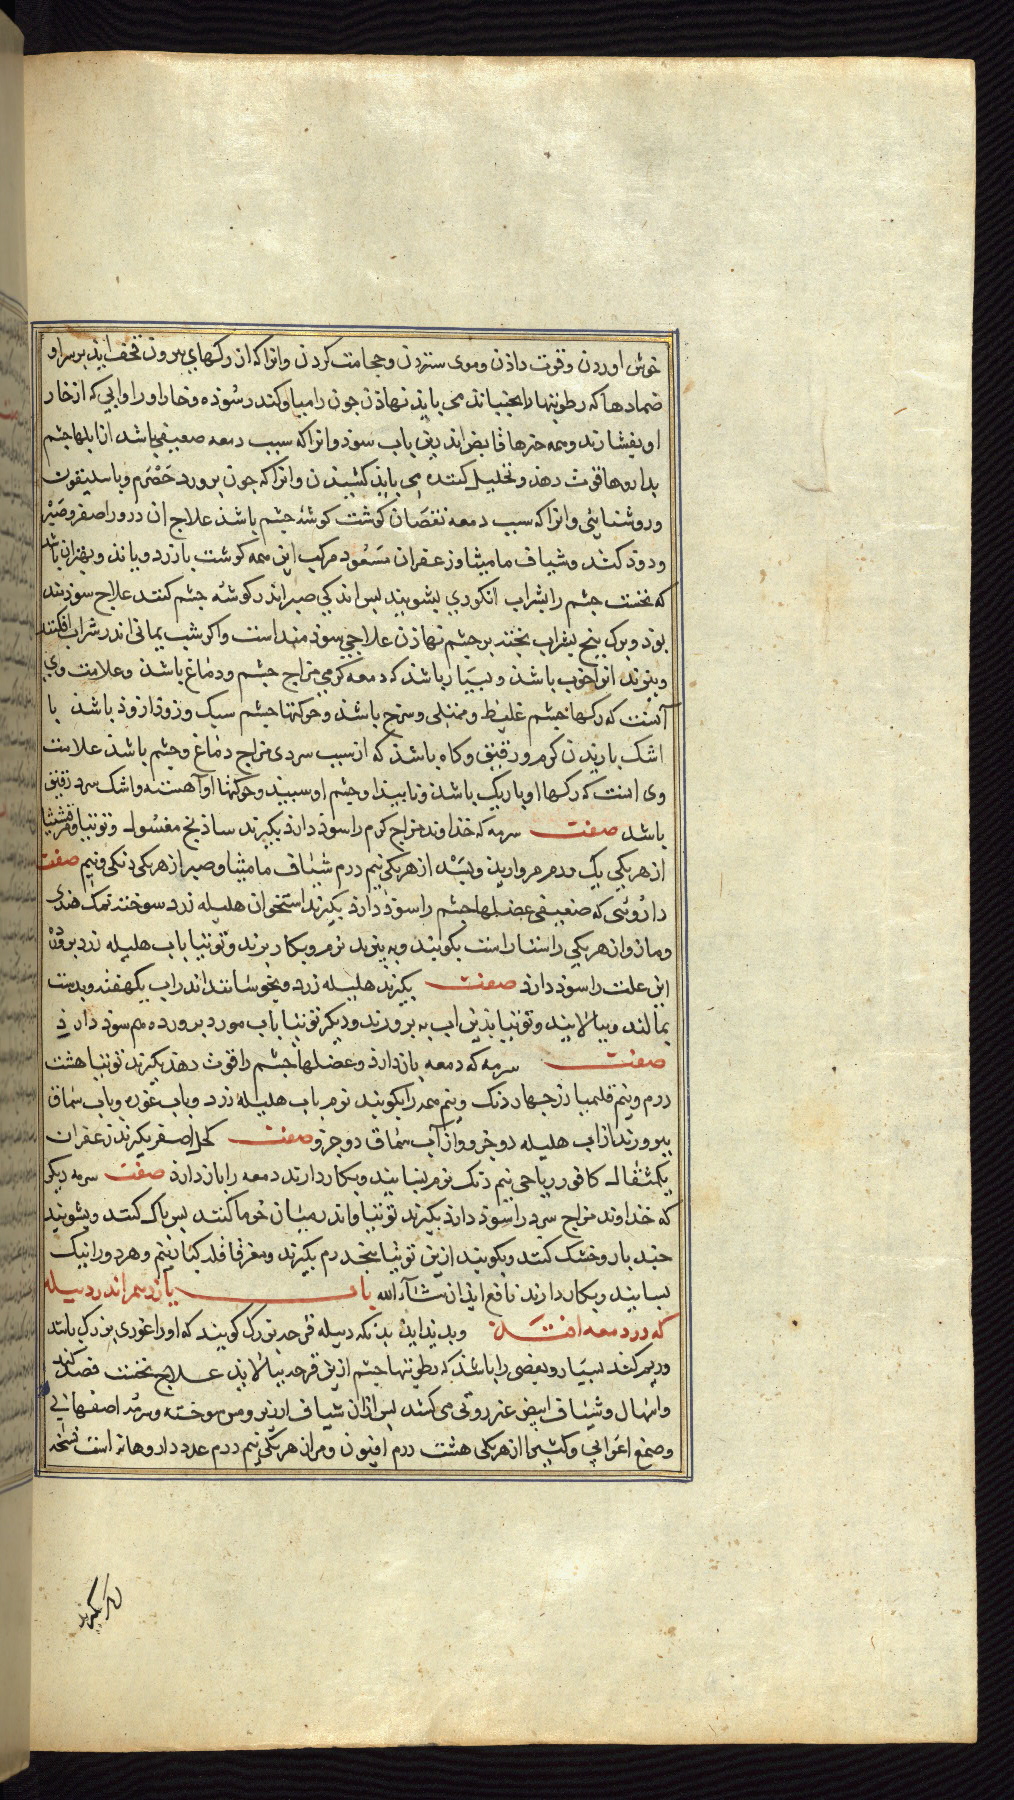 خوش اوردن و قوت داذن و موی ستردن و حجامت کردن و انرا که از رکهای بیرون قحف اید بر سر او
ضمادها که رطوبتها را بجنباند می باید نهاذن جون را میا و کندر سوذه و خار او را وابی که از خار
او بفشارند و همه جیزها قابض اندرین باب سوذ و انرا که سبب دمعه ضعیفی باشد از عضلها جشم
بداروها قوت دهذ و تحلیل کننده می باید کشیذن و انرا که جون برورد حصرم و باسلیقون
و روشنایی و انرا که سبب دمعه نقصان کوشت کوشهٔ جشم باشذ علاج ان درور اصفر و صبر
و دوذ کندر و شیاف مامیثا و زعفران مرکب این همه کوشت بازرد ویاند و بهتر ان باشد
که نخست جشم را بشراب انکوری بشویند بس اندکی صبر اندر کوشه جشم کنند علاج سوذمند
بوذ و برک بنج بشراب بخته بر جشم نهاذن علاجی سوذمند است و اکر شب یمانی اندر شراب افکنند
وببزند انرا خوب باشذ و بسیار باشذ که دمعه کرمی مزاج جشم و دماغ باشذ و علامت وی
آنست که رکها جشم غلیظ و ممتلی و سرخ باشذ و حرکتها جشم سبک و زوذازوذ باشذ با
اشک باریذن کرم و رقیق و کاه باشذ که از سبب سردی مزاج دماغ و جشم باشذ علامت
وی انست که رکها او باریک باشذ و نابیذا و جشم او سبید و حرکتها او آهسته و اشک سرد رقیق
باشد صفت سرمه که خذاوند مزاج کرم را سوذ دارذ بکیرند ساذنج مغسول و توتیا و مرقشیثا
از هر یکی یک درم مروارید و بسد از هر یکی نیم درم شیاف مامیثا و صبر از هر یکی دنکی و نیم صفت
داروئی که ضعیفی عضلها جشم را سوذ دارذ بکیرند استخوان هلیله زرد سوخته نمک هندی
و مازو از هر یکی راستا راست بکوبند و ببیزند نرم و بکار برند و توتیا باب هلیله زرد برورده
این علت را سوذ دارذ صفت بکیرند هلیله زرد و بخوشانند اندر اب یکهفته و بدست
بمالند و ببالایند و توتیا بذین اب به برورند و دیکر توتیا باب مورد برورده هم سوذ دارذ
صفت سرمه که دمعه بازدارذ و عضلها جشم را قوت دهذ بکیرند توتیا هشت
درم و نیم قلیمیا زر جهار دنک و نیم همه را بکوبند نرم باب هلیله زرد و باب غوره و باب سماق
ببرورند از اب هلیله دو جزو و از آب سماق دو جزو صفت کحل اصفر بکیرند زعفران
یکمثقال کافور ریاحی نیم دنک نرم بسایند و بکار دارند دمعه را باز دارذ صفت سرمه دیکر
که خذاوند مزاج سرد را سوذ دارذ بکیرند توتیا و اندر میان خرما کنند بس باک کنند و بشویند
جند بار و خشک کنند و بکوبند ازین توتیا بنجدرم بکیرند و هر دو را نیک
بسایند و بکار دارند نافع ایذ ان شآء الله باب یازدهم اندر دبیله
که در دمعه افتد و بدید اید بدانکه دبیله قرحه بزرک کویند که او را غوری بزرک باشد
و ریم کند بسیار و بعضی را باشذ که رطوبتها جشم ازین قرحه ببالاید علاج نخست فصد کنند
و اسهال و شیاف ابیض عنزروتی می کشند بس ازان شیاف ارزیز و مس سوخته و سرمه اصفهانی
و صمغ اعرابی و کثیرا از هر یکی هشت درم افیون و مر از هر یکی نیم درم عدد داروها نه است نسخه
بکیرند